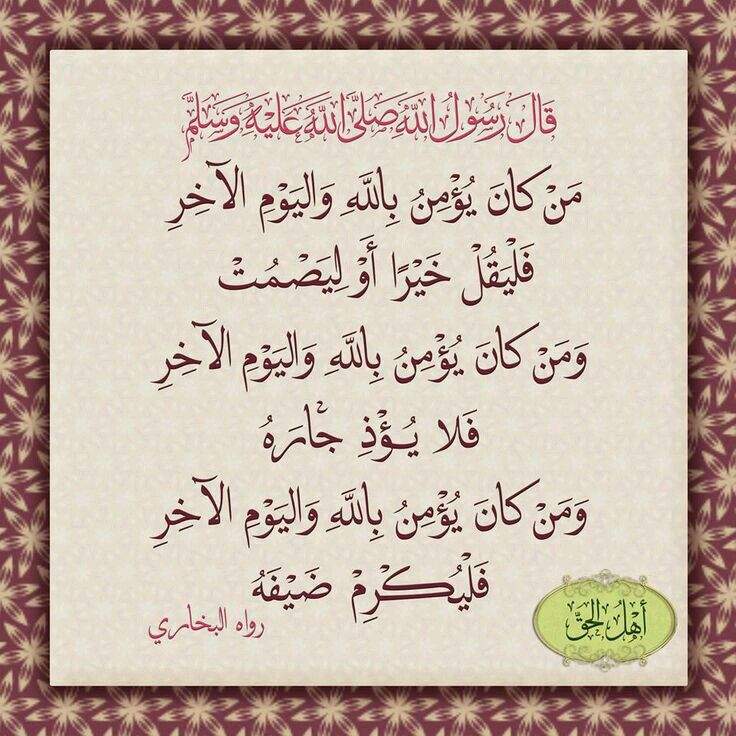 قَالَ رَسُولُ اللَّهِ صَلَّى اللَّهُ عَلَيْهِ وَسَلَّمَ
مَنْ كَانَ يُؤْمِنُ بِاللَّهِ وَاليَوْمِ الآخِرِ
فَلْيَقُلْ خَيْرًا أَوْ لِيَصْمُتْ
وَمَنْ كَانَ يُؤْمِنُ بِاللَّهِ وَاليَوْمِ الآخِرِ
فَلا يُؤْذِ جَارَهُ
وَمَنْ كَانَ يُؤْمِنُ بِاللَّهِ وَاليَوْمِ الآخِرِ
فَلْيُكْرِمْ ضَيْفَهُ
رواه البخاري
أَهْلُ الحَقِّ